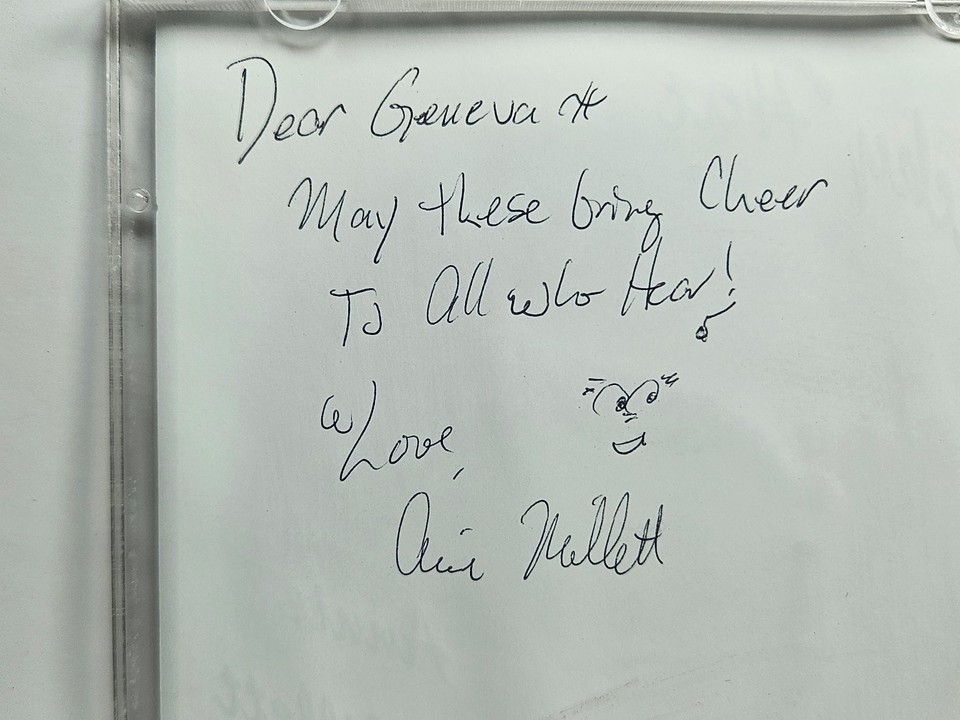 Dear Geneva *
May these bring Cheer
To All who Hear!
w/Love,
Millett